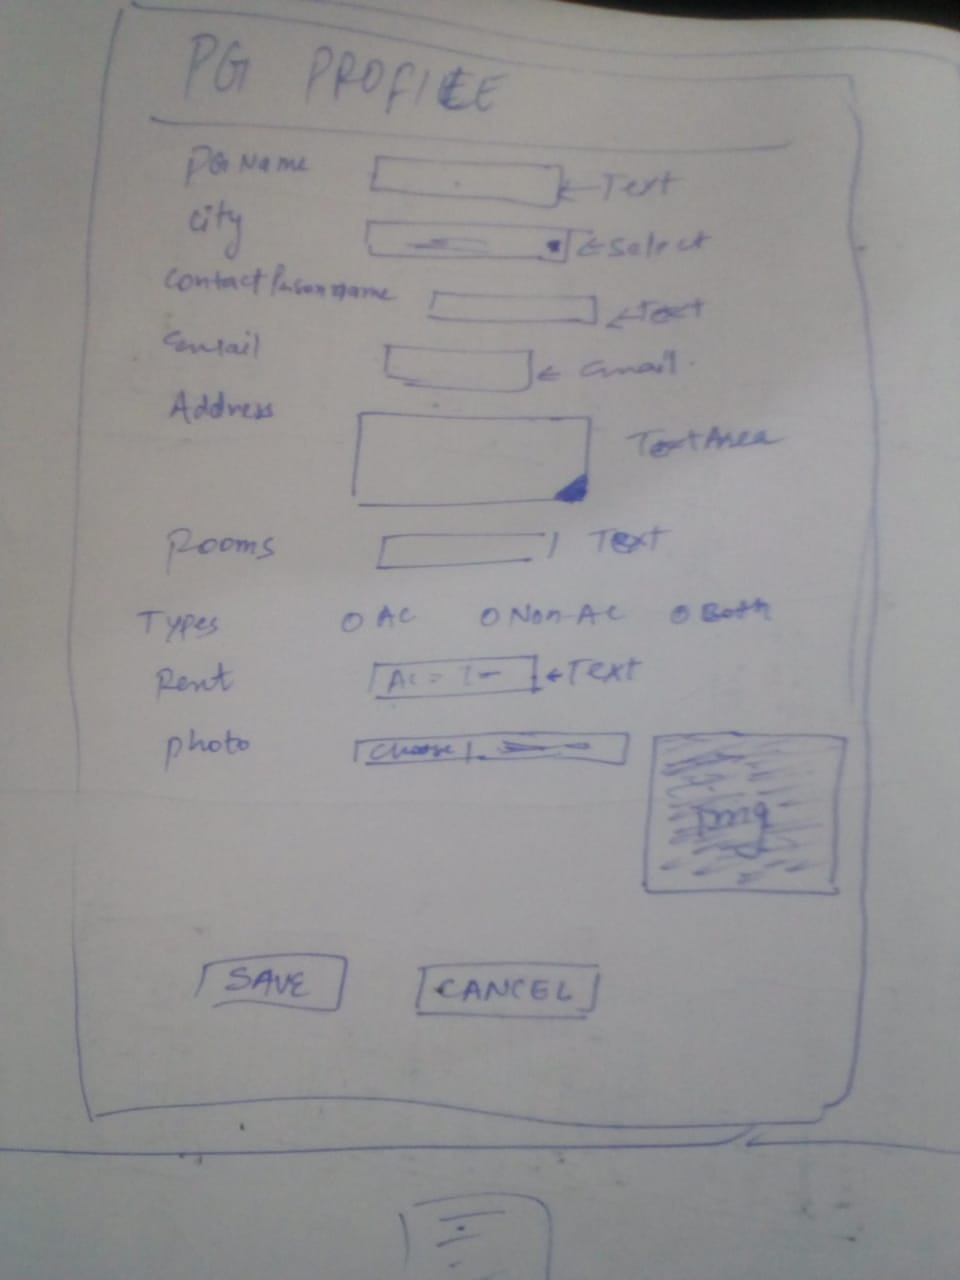 PG PROFILE
PG Name ← Text
City ← Select
Contact Person name ← Text
Email ← email.
Address TextArea
Rooms Text
Types AC Non-AC Both
Rent AC = ← Text
photo Choose
Img
SAVE CANCEL